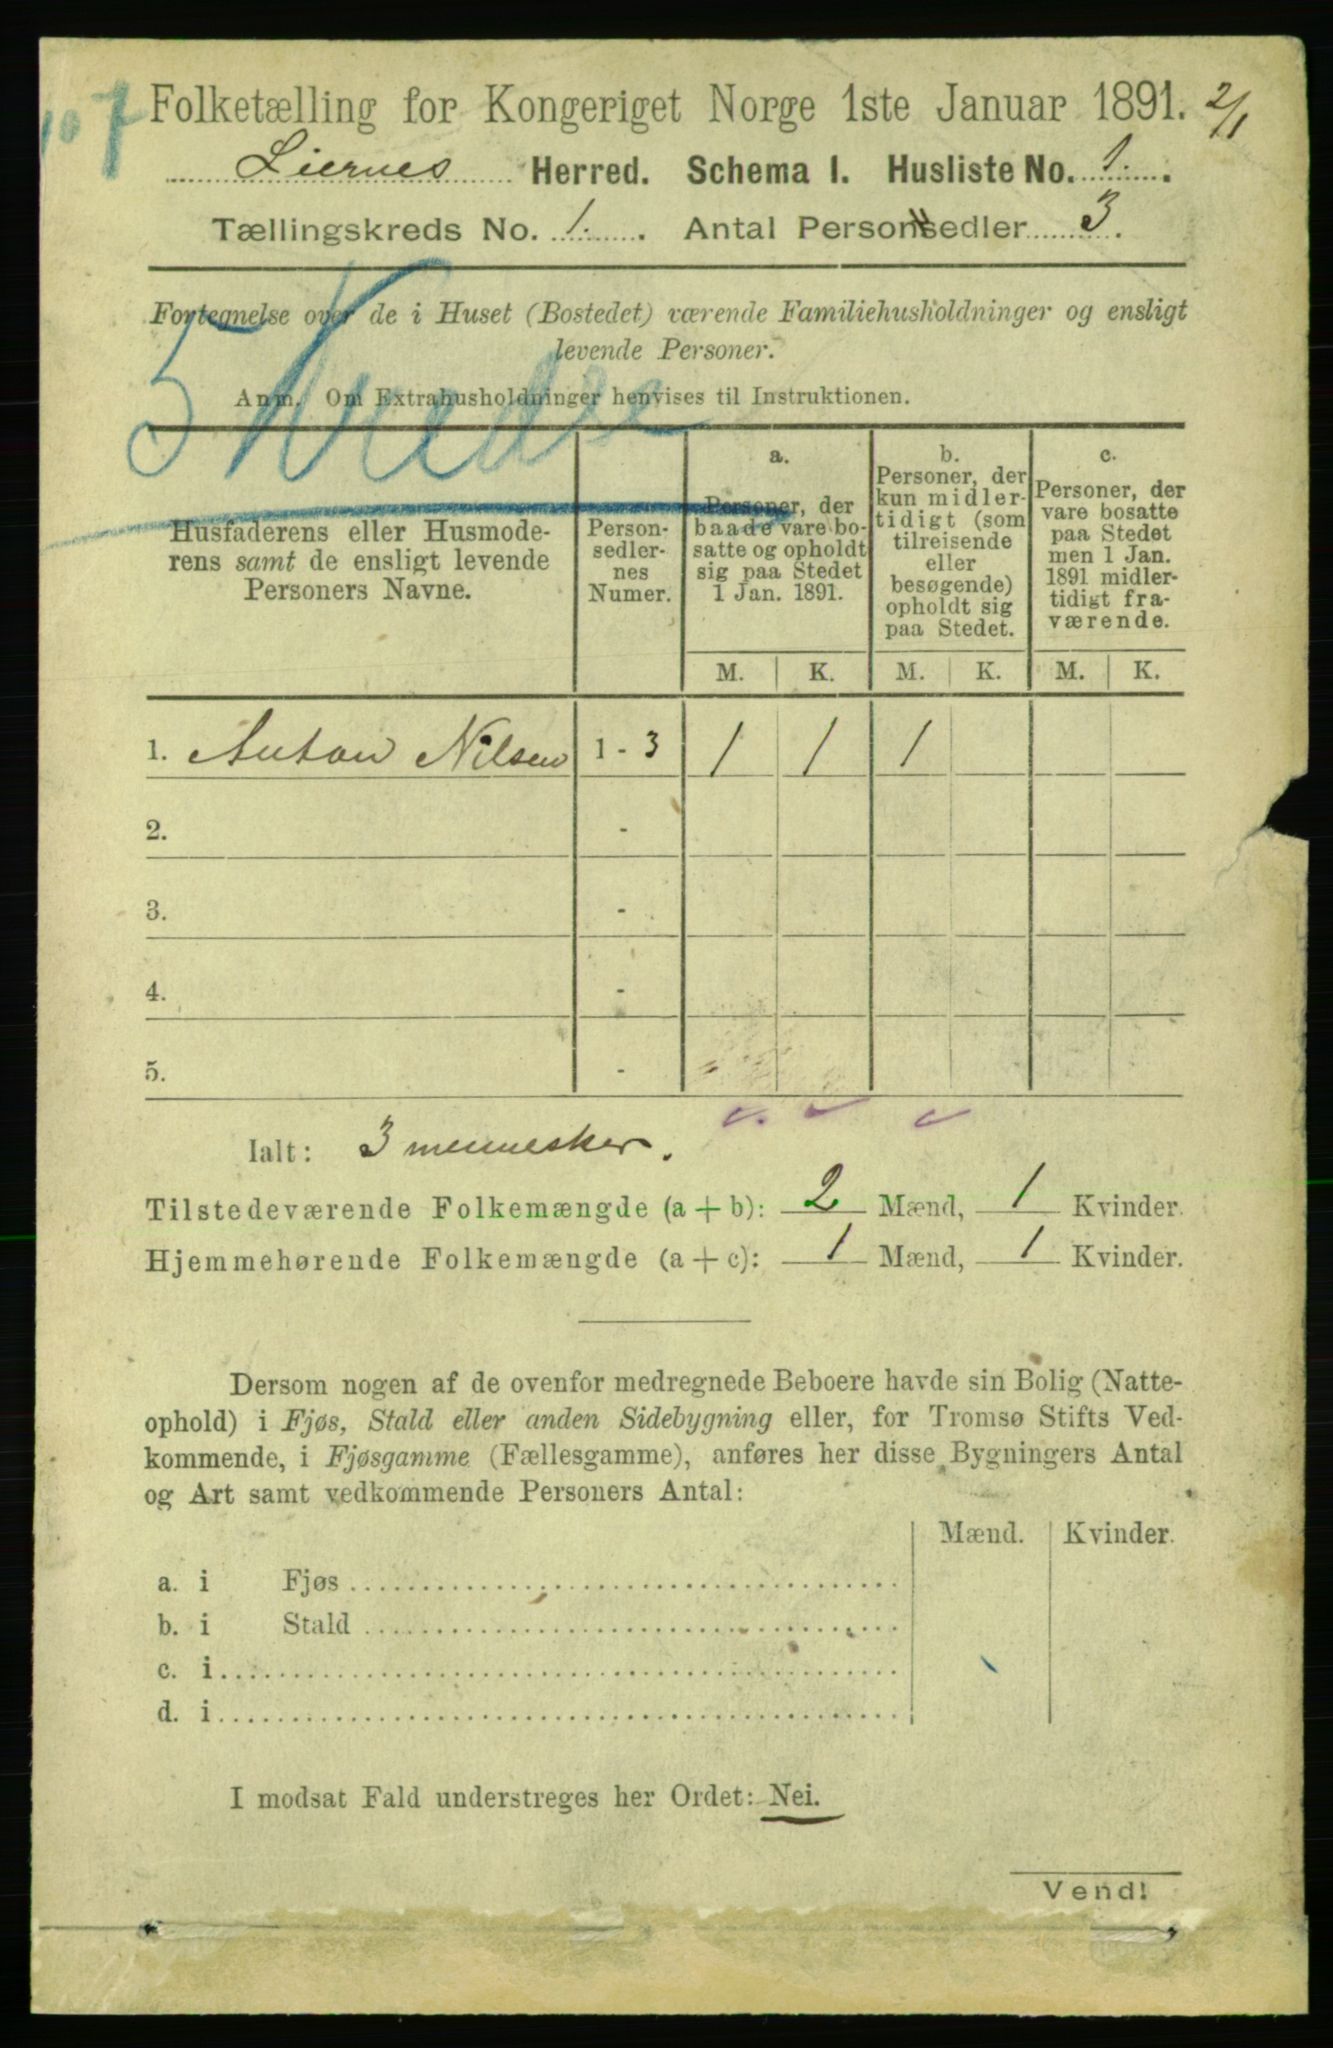 107
Folketælling for Kongeriget Norge 1ste Januar 1891. 2/1
Liernes Herred. Schema I. Husliste No. 1.
Tællingskreds No. 1. Antal Personsedler 3.
5 Kredse
Fortegnelse over de i Huset (Bostedet) værende Familiehusholdninger og ensligt
levende Personer.
Anm. Om Extrahusholdninger henvises til Instruktionen.
Husfaderens eller Husmode-
rens samt de ensligt levende
Personers Navne.
Person-
sedler-
nes
Numer.
a.
Personer, der
baade vare bo-
satte og opholdt
sig paa Stedet
1 Jan. 1891.
b.
Personer, der
kun midler-
tidigt (som
tilreisende
eller
besøgende)
opholdt sig
paa Stedet.
c.
Personer, der
vare bosatte
paa Stedet
men 1 Jan.
1891 midler-
tidigt fra-
værende.
M. K. M. K. M. K.
1. Anton Nilsen 1 - 3 1 1 1
2. -
3. -
4. -
5. -
Ialt: 3 mennesker.
Tilstedeværende Folkemængde (a + b): 2 Mænd, 1 Kvinder.
Hjemmehørende Folkemængde (a + c): 1 Mænd, 1 Kvinder.
Dersom nogen af de ovenfor medregnede Beboere havde sin Bolig (Natte-
ophold) i Fjøs, Stald eller anden Sidebygning eller, for Tromsø Stifts Ved-
kommende, i Fjøsgamme (Fællesgamme), anføres her disse Bygningers Antal
og Art samt vedkommende Personers Antal:
Mænd. Kvinder.
a. i Fjøs
b. i Stald
c. i
d. i
I modsat Fald understreges her Ordet: Nei.
Vend!